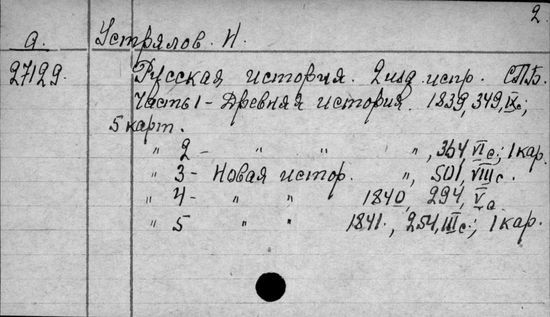 2
а. Устрялов. Н.
27129. Русская история. 2 изд. испр. СПБ.
Часть 1 - Древняя история. 1839, 349, IX с;
5 карт.
" 2 - " " " , 364, VI с; 1 кар.
" 3 - Новая истор. " , 501, VIII с.
" 4 - " " 1840, 294, V с.
" 5 " " 1841., 254, III с; 1 кар.